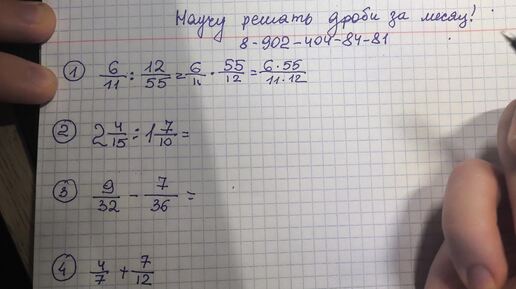 Научу решать дроби за месяц!
8-902-404-84-81
① 6/11 : 12/55 = 6/11 · 55/12 = 6·55/11·12
② 2 4/15 : 1 7/10 =
③ 9/32 - 7/36 =
④ 4/7 + 7/12